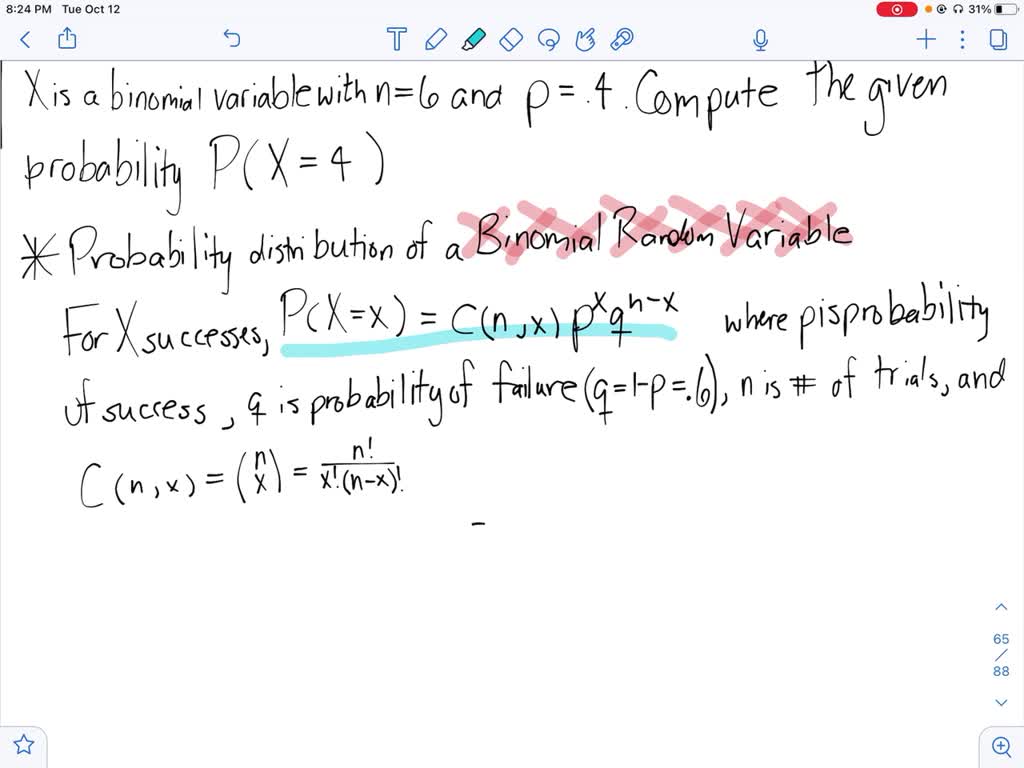 8:24 PM Tue Oct 12 31%
T
X is a binomial variable with n=6 and p=.4. Compute the given
probability P(X=4)
* Probability distribution of a Binomial Random Variable
For X successes, P(X=x) = C(n,x) p^x q^n-x where p is probability
of success, q is probability of failure (q=1-p=.6), n is # of trials, and
C(n,x) = (n x) = n! / x!(n-x)!
-
65
/
88